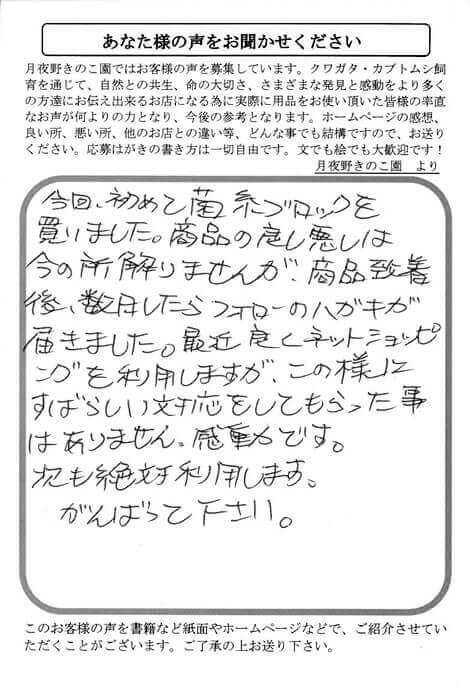 あなた様の声をお聞かせください
月夜野きのこ園ではお客様の声を募集しています。クワガタ・カブトムシ飼
育を通じて、自然との共生、命の大切さ、さまざまな発見と感動をより多く
の方達にお伝え出来るお店になる為に実際に用品をお使い頂いた皆様の率直
なお声が何よりの力となり、今後の参考となります。ホームページの感想、
良い所、悪い所、他のお店との違い等、どんな事でも結構ですので、お送り
ください。応募はがきの書き方は一切自由です。文でも絵でも大歓迎です！
月夜野きのこ園　より
今回、初めて菌糸ブロックを
買いました。商品の良し悪しは
今の所解りませんが、商品到着
後、数日したらフォローのハガキが
届きました。最近良くネットショッピ
ングを利用しますが、この様に
すばらしい対応をしてもらった事
はありません。感動です。
次も絶対利用します。
がんばって下さい。
このお客様の声を書籍など紙面やホームページなどで、ご紹介させてい
ただくことがございます。ご了承の上お送り下さい。